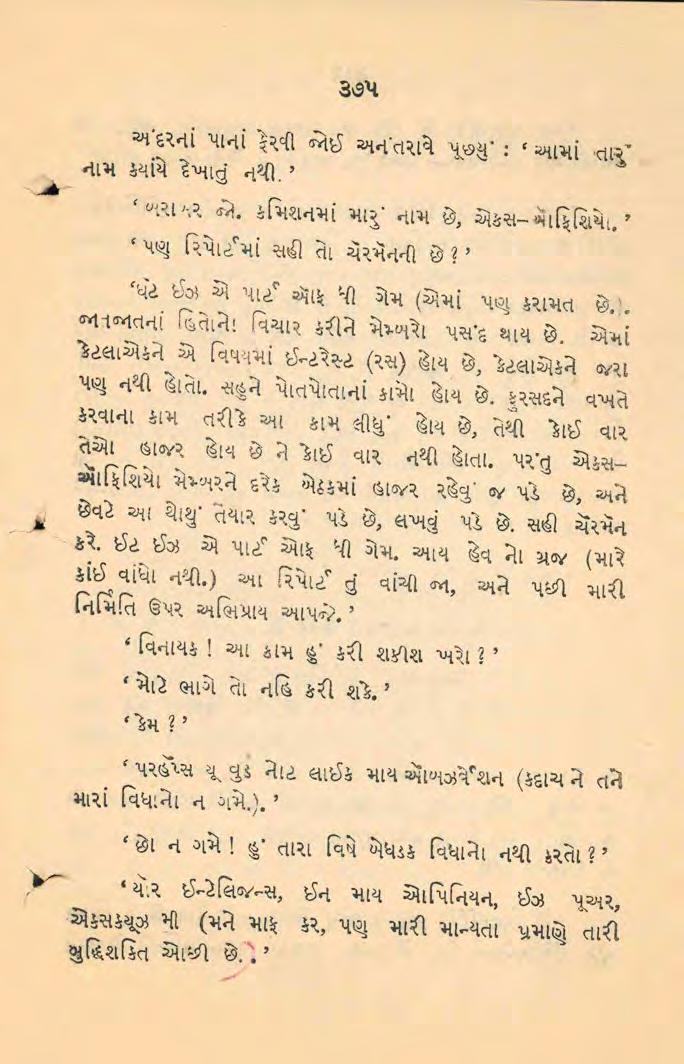 ૩૭૫
અંદરનાં પાનાં ફેરવી જોઈ અનંતરાવે પૂછ્યું : ‘ આમાં તારું
નામ ક્યાંયે દેખાતું નથી. ’
‘ બરાબર જો. કમિશનમાં મારું નામ છે, એક્સ–ઑફિશિયો. ’
‘ પણ રિપોર્ટમાં સહી તો ચૅરમૅનની છે ? ’
‘ધૅટ ઈઝ એ પાર્ટ ઑફ ધી ગેમ (એમાં પણ કરામત છે.).
જાતજાતનાં હિતોનો વિચાર કરીને મેમ્બરો પસંદ થાય છે. એમાં
કેટલાએકને એ વિષયમાં ઈન્ટરેસ્ટ (રસ) હોય છે, કેટલાએકને જરા
પણ નથી હોતો. સહુને પોતપોતાનાં કામો હોય છે. ફુરસદને વખતે
કરવાના કામ તરીકે આ કામ લીધું હોય છે, તેથી કોઈ વાર
તેઓ હાજર હોય છે ને કોઈ વાર નથી હોતા. પરંતુ એક્સ–
ઑફિશિયો મેમ્બરને દરેક બેઠકમાં હાજર રહેવું જ પડે છે, અને
છેવટે આ થોથું તૈયાર કરવું પડે છે, લખવું પડે છે. સહી ચૅરમૅન
કરે. ઈટ ઈઝ એ પાર્ટ ઓફ ધી ગેમ. આય હેવ નો ગ્રજ (મારે
કાંઈ વાંધો નથી.) આ રિપોર્ટ તું વાંચી જા, અને પછી મારી
નિર્મિતિ ઉપર અભિપ્રાય આપજે. ’
‘ વિનાયક ! આ કામ હું કરી શકીશ ખરો ? ’
‘ મોટે ભાગે તો નહિ કરી શકે. ’
‘ કેમ ? ’
‘ પરહૅપ્સ યૂ વુડ નોટ લાઈક માય ઑબઝર્વેશન (કદાચ ને તને
મારાં વિધાનો ન ગમે.). ’
‘ છો ન ગમે ! હું તારા વિષે બેધડક વિધાનો નથી કરતો ? ’
‘ યૉર ઈન્ટેલિજન્સ, ઈન માય ઓપિનિયન, ઈઝ પૂઅર,
એક્સક્યૂઝ મી (મને માફ કર, પણ મારી માન્યતા પ્રમાણે તારી
બુદ્ધિશક્તિ ઓછી છે.). ’